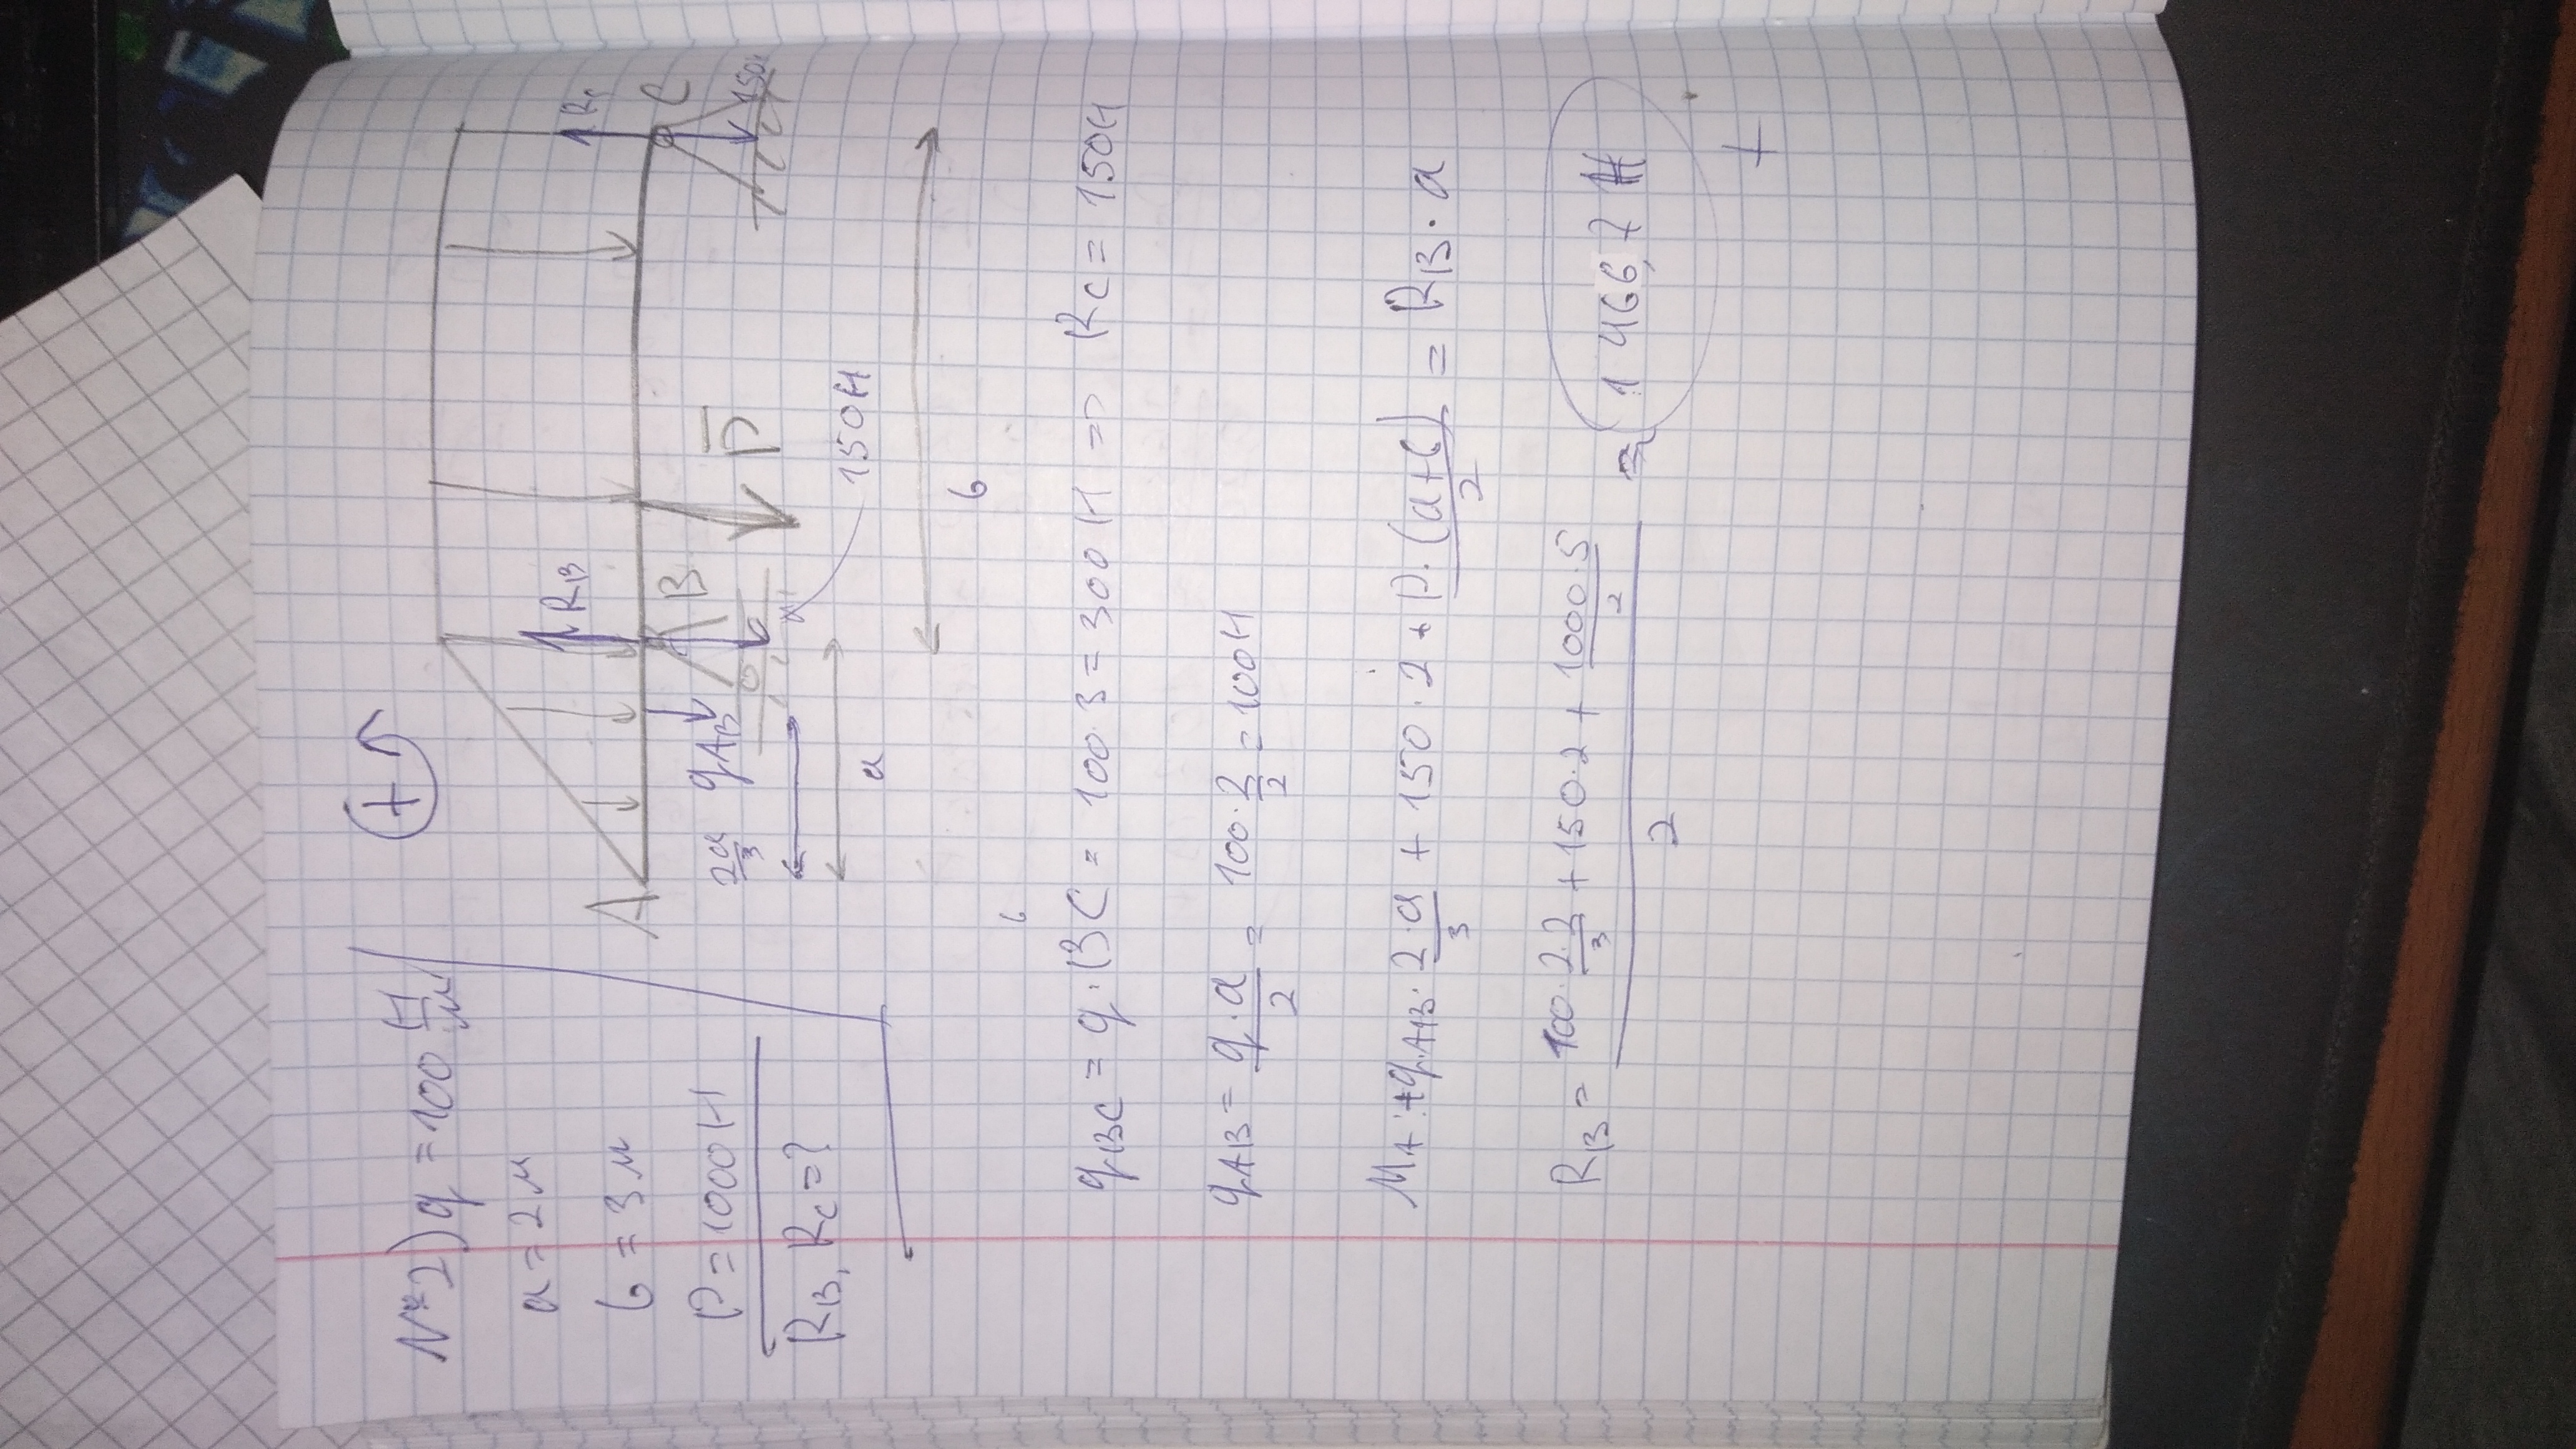 №2) q = 100 Н/м
a = 2 м
b = 3 м
P = 1000 Н
R_B, R_C = ?
+
R_B
R_C
A
B
C
2a/3
q_AB
P̅
150Н
a
150Н
b
q_BC = q · BC = 100·3 = 300 Н => R_C = 150Н
q_AB = q·a/2 = 100·2/2 = 100Н
M_A: +q_AB · 2·a/3 + 150·2 + P·(a+b)/2 = R_B · a
R_B = (100·2·2/3 + 150·2 + 1000·5/2)/2 ≈ 1466,7 Н
+